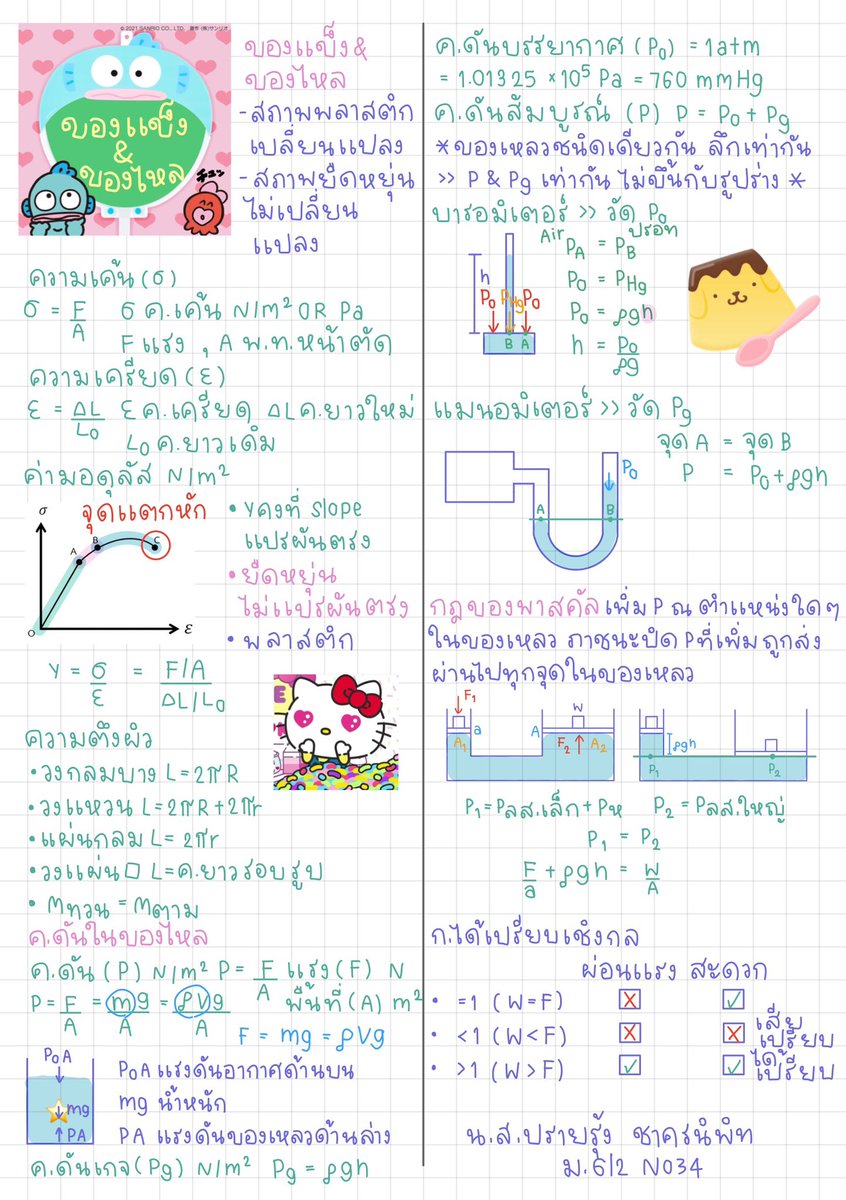 © 2021 SANRIO CO., LTD.
ของแข็ง
&
ของไหล
ของแข็ง &
ของไหล
- สภาพพลาสติก
เปลี่ยนแปลง
- สภาพยืดหยุ่น
ไม่เปลี่ยน
แปลง
ความเค้น (σ)
σ = F/A σ ค.เค้น N/m² OR Pa
F แรง , A พ.ท.หน้าตัด
ความเครียด (ε)
ε = ΔL/L₀ ε ค.เครียด ΔL ค.ยาวใหม่
L₀ ค.ยาวเดิม
ค่ามอดุลัส N/m²
σ
จุดแตกหัก
A B C
O
ε
• Y คงที่ slope
แปรผันตรง
• ยืดหยุ่น
ไม่แปรผันตรง
• พลาสติก
Y = σ/ε = F/A / ΔL/L₀
ความตึงผิว
• วงกลมบาง L = 2πR
• วงแหวน L = 2πR + 2πr
• แผ่นกลม L = 2πr
• วงแผ่น □ L = ค.ยาวรอบรูป
• Mทวน = Mตาม
ค.ดันในของไหล
ค.ดัน (P) N/m² P = F/A แรง (F) N
P = F/A = mg/A = ρVg/A พื้นที่ (A) m²
F = mg = ρVg
P₀A
mg
PA
P₀A แรงดันอากาศด้านบน
mg น้ำหนัก
PA แรงดันของเหลวด้านล่าง
ค.ดันเกจ (Pg) N/m² Pg = ρgh
ค.ดันบรรยากาศ (P₀) = 1 atm
= 1.01325 × 10⁵ Pa = 760 mmHg
ค.ดันสัมบูรณ์ (P) P = P₀ + Pg
* ของเหลวชนิดเดียวกัน ลึกเท่ากัน
>> P & Pg เท่ากัน ไม่ขึ้นกับรูปร่าง *
บารอมิเตอร์ >> วัด P₀
Air ปรอท
P_A = P_B
P₀ = P_Hg
P₀ = ρgh
h = P₀/ρg
h
P₀ P_Hg P₀
B A
แมนอมิเตอร์ >> วัด Pg
จุด A = จุด B
P = P₀ + ρgh
P₀
A B
กฎของพาสคัล เพิ่ม P ณ ตำแหน่งใดๆ
ในของเหลว ภาชนะปิด P ที่เพิ่ม ถูกส่ง
ผ่านไปทุกจุดในของเหลว
F₁ W
a A
A₁ F₂ A₂
ρgh
P₁ P₂
P₁ = Pลส.เล็ก + Pห P₂ = Pลส.ใหญ่
P₁ = P₂
F/a + ρgh = W/A
ก.ได้เปรียบเชิงกล
ผ่อนแรง สะดวก
• = 1 (W = F) ☒ ☑
• < 1 (W < F) ☒ ☒ เสียเปรียบ
• > 1 (W > F) ☑ ☑ ได้เปรียบ
น.ส.ปรายรุ้ง ชาครนิพิท
ม.6/2 NO34